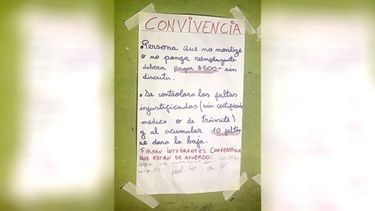 CONVIVENCIA
• Persona que no
o no ponga reemplazante
debera pagar $500.- sin
discutir.
• Se controlara las faltas
injustificadas (sin certificado
medico o de trámite)
y al acumular 10 faltas
se dara la baja.
FIRMAN INTEGRANTES COOPERATIVA
QUE ESTAN DE ACUERDO: